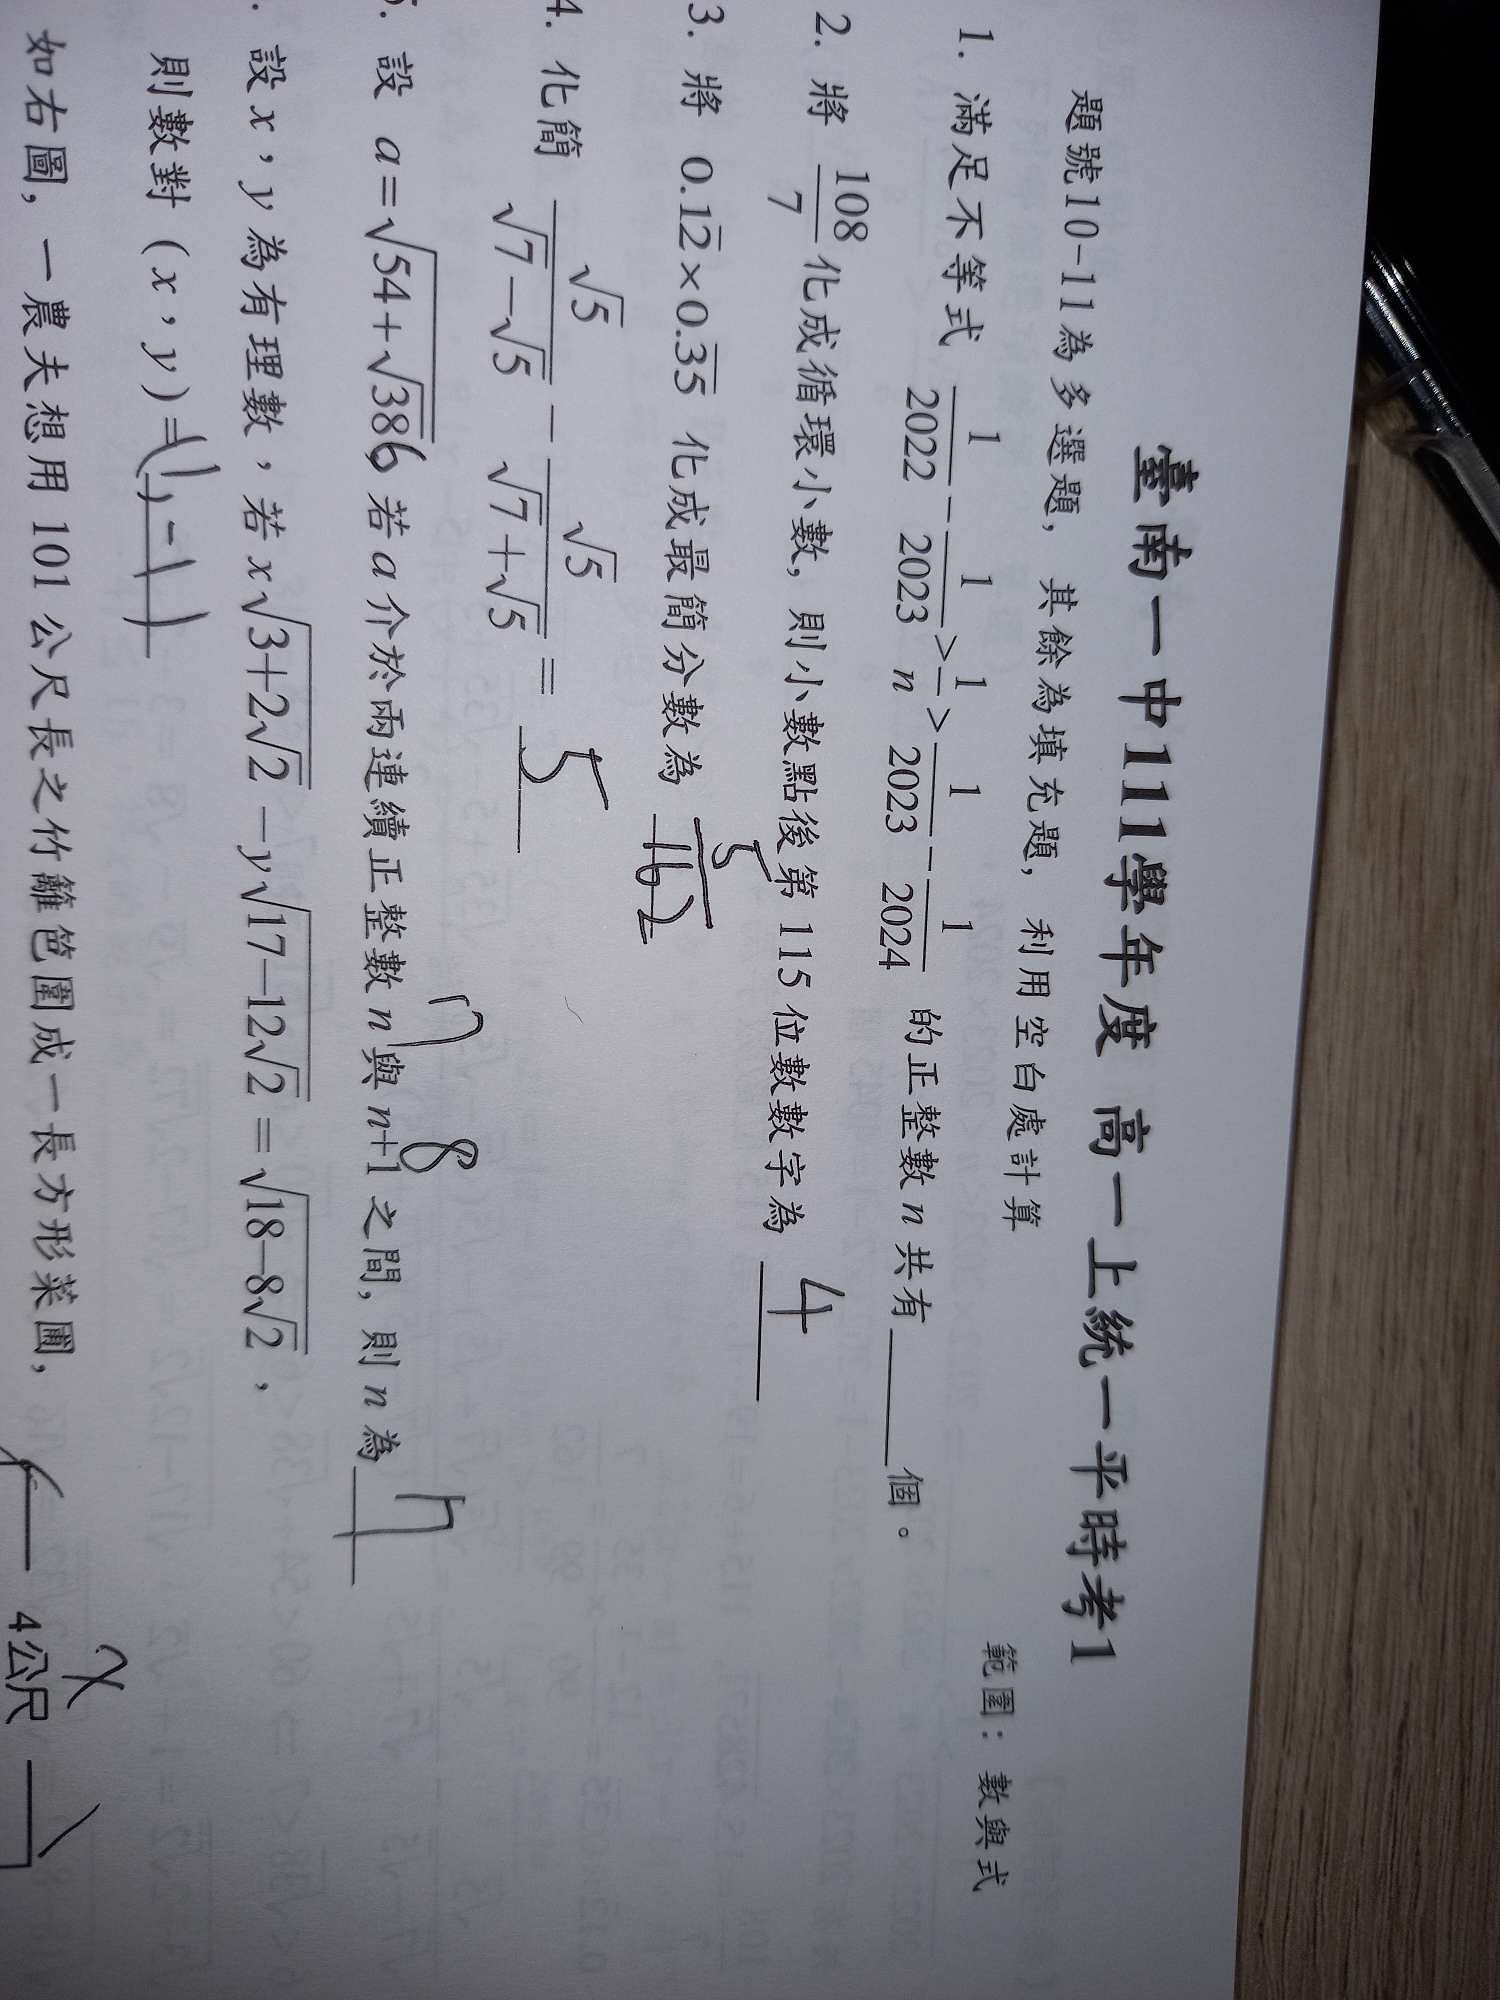 臺南一中111學年度 高一上統一平時考1
範圍：數與式
題號10-11為多選題，其餘為填充題，利用空白處計算
1. 滿足不等式 1/2022 − 1/2023 > 1/n > 1/2023 − 1/2024 的正整數 n 共有______個。
2. 將 108/7 化成循環小數，則小數點後第 115 位數數字為 4
3. 將 0.1\overline{2}×0.\overline{35} 化成最簡分數為 7/162
4. 化簡 √5/(√7−√5) − √5/(√7+√5) = 5
5. 設 a=√(54+√386) 若 a 介於兩連續正整數 n 與 n+1 之間，則 n 為 7
7 8
. 設 x，y 為有理數，若 x√(3+2√2) − y√(17−12√2) = √(18−8√2)，
則數對 (x，y)=(1,-1)
如右圖，一農夫想用 101 公尺長之竹籬笆圍成一長方形菜圃，
x
4公尺